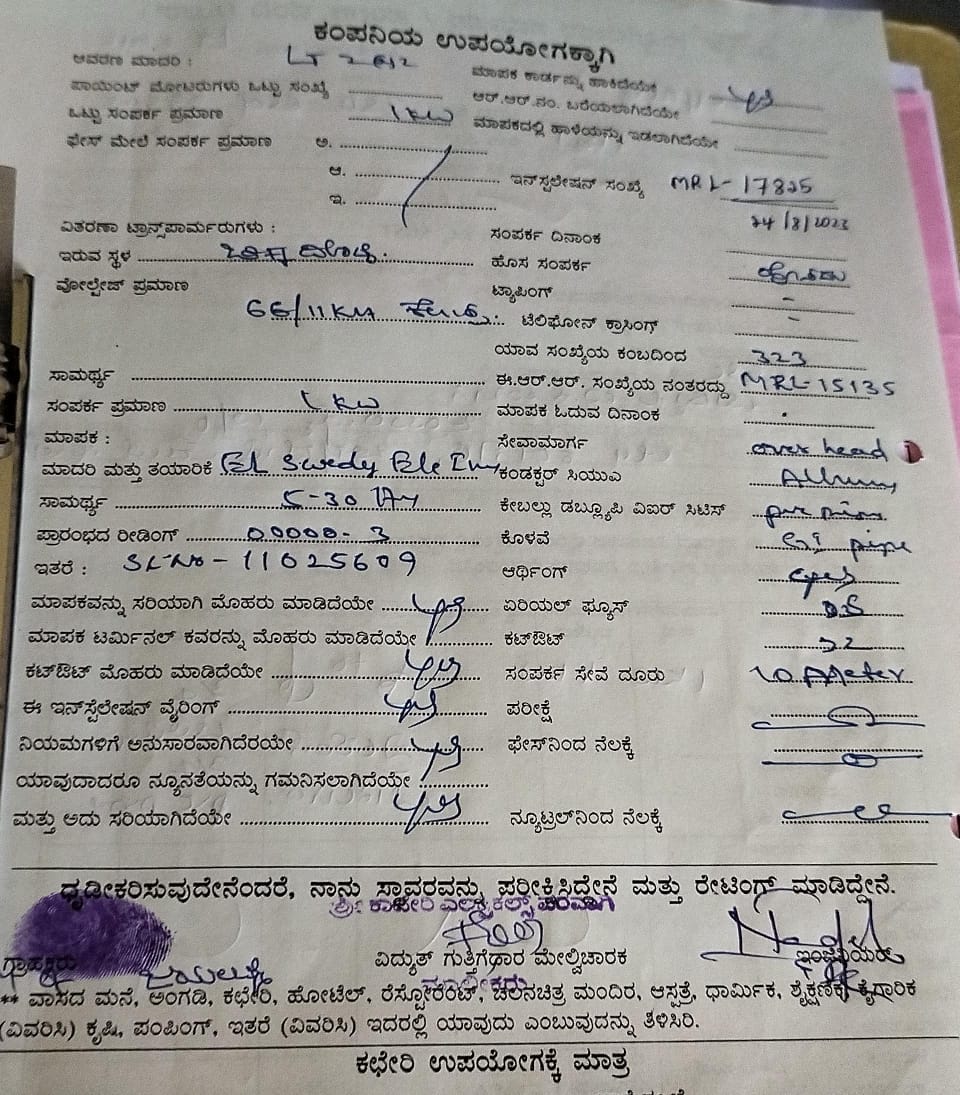 ಕಂಪನಿಯ ಉಪಯೋಗಕ್ಕಾಗಿ
ಆವರಣ ಮಾದರಿ : LT 2 ಮಾಪಕ ಕಾರ್ಡನ್ನು ಹಾಕಿದೆಯೇ
ಪಾಯಿಂಟ್ ಮೋಟರುಗಳು ಒಟ್ಟು ಸಂಖ್ಯೆ ಆರ್.ಆರ್.ನಂ. ಬರೆಯಲಾಗಿದೆಯೇ yes
ಒಟ್ಟು ಸಂಪರ್ಕ ಪ್ರಮಾಣ 1KW ಮಾಪಕದಲ್ಲಿ ಹಾಳೆಯನ್ನು ಇಡಲಾಗಿದೆಯೇ
ಫೇಸ್ ಮೇಲೆ ಸಂಪರ್ಕ ಪ್ರಮಾಣ ಅ.
ಆ. ಇನ್‌ಸ್ಟಲೇಷನ್ ಸಂಖ್ಯೆ MRL-17825
ಇ. 24/8/2023
ವಿತರಣಾ ಟ್ರಾನ್ಸ್‌ಪಾರ್ಮರುಗಳು : ಸಂಪರ್ಕ ದಿನಾಂಕ
ಇರುವ ಸ್ಥಳ ಹೊಸ ಸಂಪರ್ಕ ಹೊಸದು
ವೋಲ್ಟೇಜ್ ಪ್ರಮಾಣ ಟ್ಯಾಪಿಂಗ್ -
66/11KM ಟೆಲಿಫೋನ್ ಕ್ರಾಸಿಂಗ್ -
ಯಾವ ಸಂಖ್ಯೆಯ ಕಂಬದಿಂದ 323
ಸಾಮರ್ಥ್ಯ ಈ.ಆರ್.ಆರ್. ಸಂಖ್ಯೆಯ ನಂತರದ್ದು MRL-15135
ಸಂಪರ್ಕ ಪ್ರಮಾಣ 1 KW ಮಾಪಕ ಓದುವ ದಿನಾಂಕ
ಮಾಪಕ : ಸೇವಾಮಾರ್ಗ over head
ಮಾದರಿ ಮತ್ತು ತಯಾರಿಕೆ El Swedy Ele ಕಂಡಕ್ಟರ್ ಸಿಯುಎ
ಸಾಮರ್ಥ್ಯ 5-30 ಕೇಬಲ್ಲು ಡಬ್ಲ್ಯೂಪಿ ವಿಐರ್ ಸಿಟಿಸ್
ಪ್ರಾರಂಭದ ರೀಡಿಂಗ್ 00000-3 ಕೊಳವೆ GI pipe
ಇತರೆ : SL No - 11025609 ಆರ್ಥಿಂಗ್ yes
ಮಾಪಕವನ್ನು ಸರಿಯಾಗಿ ಮೊಹರು ಮಾಡಿದೆಯೇ yes ಏರಿಯಲ್ ಫ್ಯೂಸ್ 05
ಮಾಪಕ ಟರ್ಮಿನಲ್ ಕವರನ್ನು ಮೊಹರು ಮಾಡಿದೆಯೇ ಕಟ್‌ಔಟ್ 32
ಕಟ್‌ಔಟ್ ಮೊಹರು ಮಾಡಿದೆಯೇ yes ಸಂಪರ್ಕ ಸೇವೆ ದೂರು 10 Meter
ಈ ಇನ್‌ಸ್ಟೆಲೇಷನ್ ವೈರಿಂಗ್ yes ಪರೀಕ್ಷೆ
ನಿಯಮಗಳಿಗೆ ಅನುಸಾರವಾಗಿದೆರಯೇ yes ಫೇಸ್‌ನಿಂದ ನೆಲಕ್ಕೆ
ಯಾವುದಾದರೂ ನ್ಯೂನತೆಯನ್ನು ಗಮನಿಸಲಾಗಿದೆಯೇ
ಮತ್ತು ಅದು ಸರಿಯಾಗಿದೆಯೇ yes ನ್ಯೂಟ್ರಲ್‌ನಿಂದ ನೆಲಕ್ಕೆ
ಧೃಡೀಕರಿಸುವುದೇನೆಂದರೆ, ನಾನು ಸ್ಥಾವರವನ್ನು ಪರೀಕ್ಷಿಸಿದ್ದೇನೆ ಮತ್ತು ರೇಟಿಂಗ್ ಮಾಡಿದ್ದೇನೆ.
ಶ್ರೀ ಕಾವೇರಿ ಎಲೆಕ್ಟ್ರಿಕಲ್ಸ್ ಪರವಾಗಿ
ಗ್ರಾಹಕರು ವಿದ್ಯುತ್ ಗುತ್ತಿಗೆಧಾರ ಮೇಲ್ವಿಚಾರಕ ಇಂಜಿನಿಯರ್
ಮಾಲೀಕರು
** ವಾಸದ ಮನೆ, ಅಂಗಡಿ, ಕಛೇರಿ, ಹೋಟೆಲ್, ರೆಸ್ಟೋರೆಂಟ್, ಚಲನಚಿತ್ರ ಮಂದಿರ, ಆಸ್ಪತ್ರೆ, ಧಾರ್ಮಿಕ, ಶೈಕ್ಷಣಿಕ, ಕೈಗಾರಿಕ
(ವಿವರಿಸಿ) ಕೃಷಿ, ಪಂಪಿಂಗ್, ಇತರೆ (ವಿವರಿಸಿ) ಇದರಲ್ಲಿ ಯಾವುದು ಎಂಬುವುದನ್ನು ತಿಳಿಸಿರಿ.
ಕಛೇರಿ ಉಪಯೋಗಕ್ಕೆ ಮಾತ್ರ